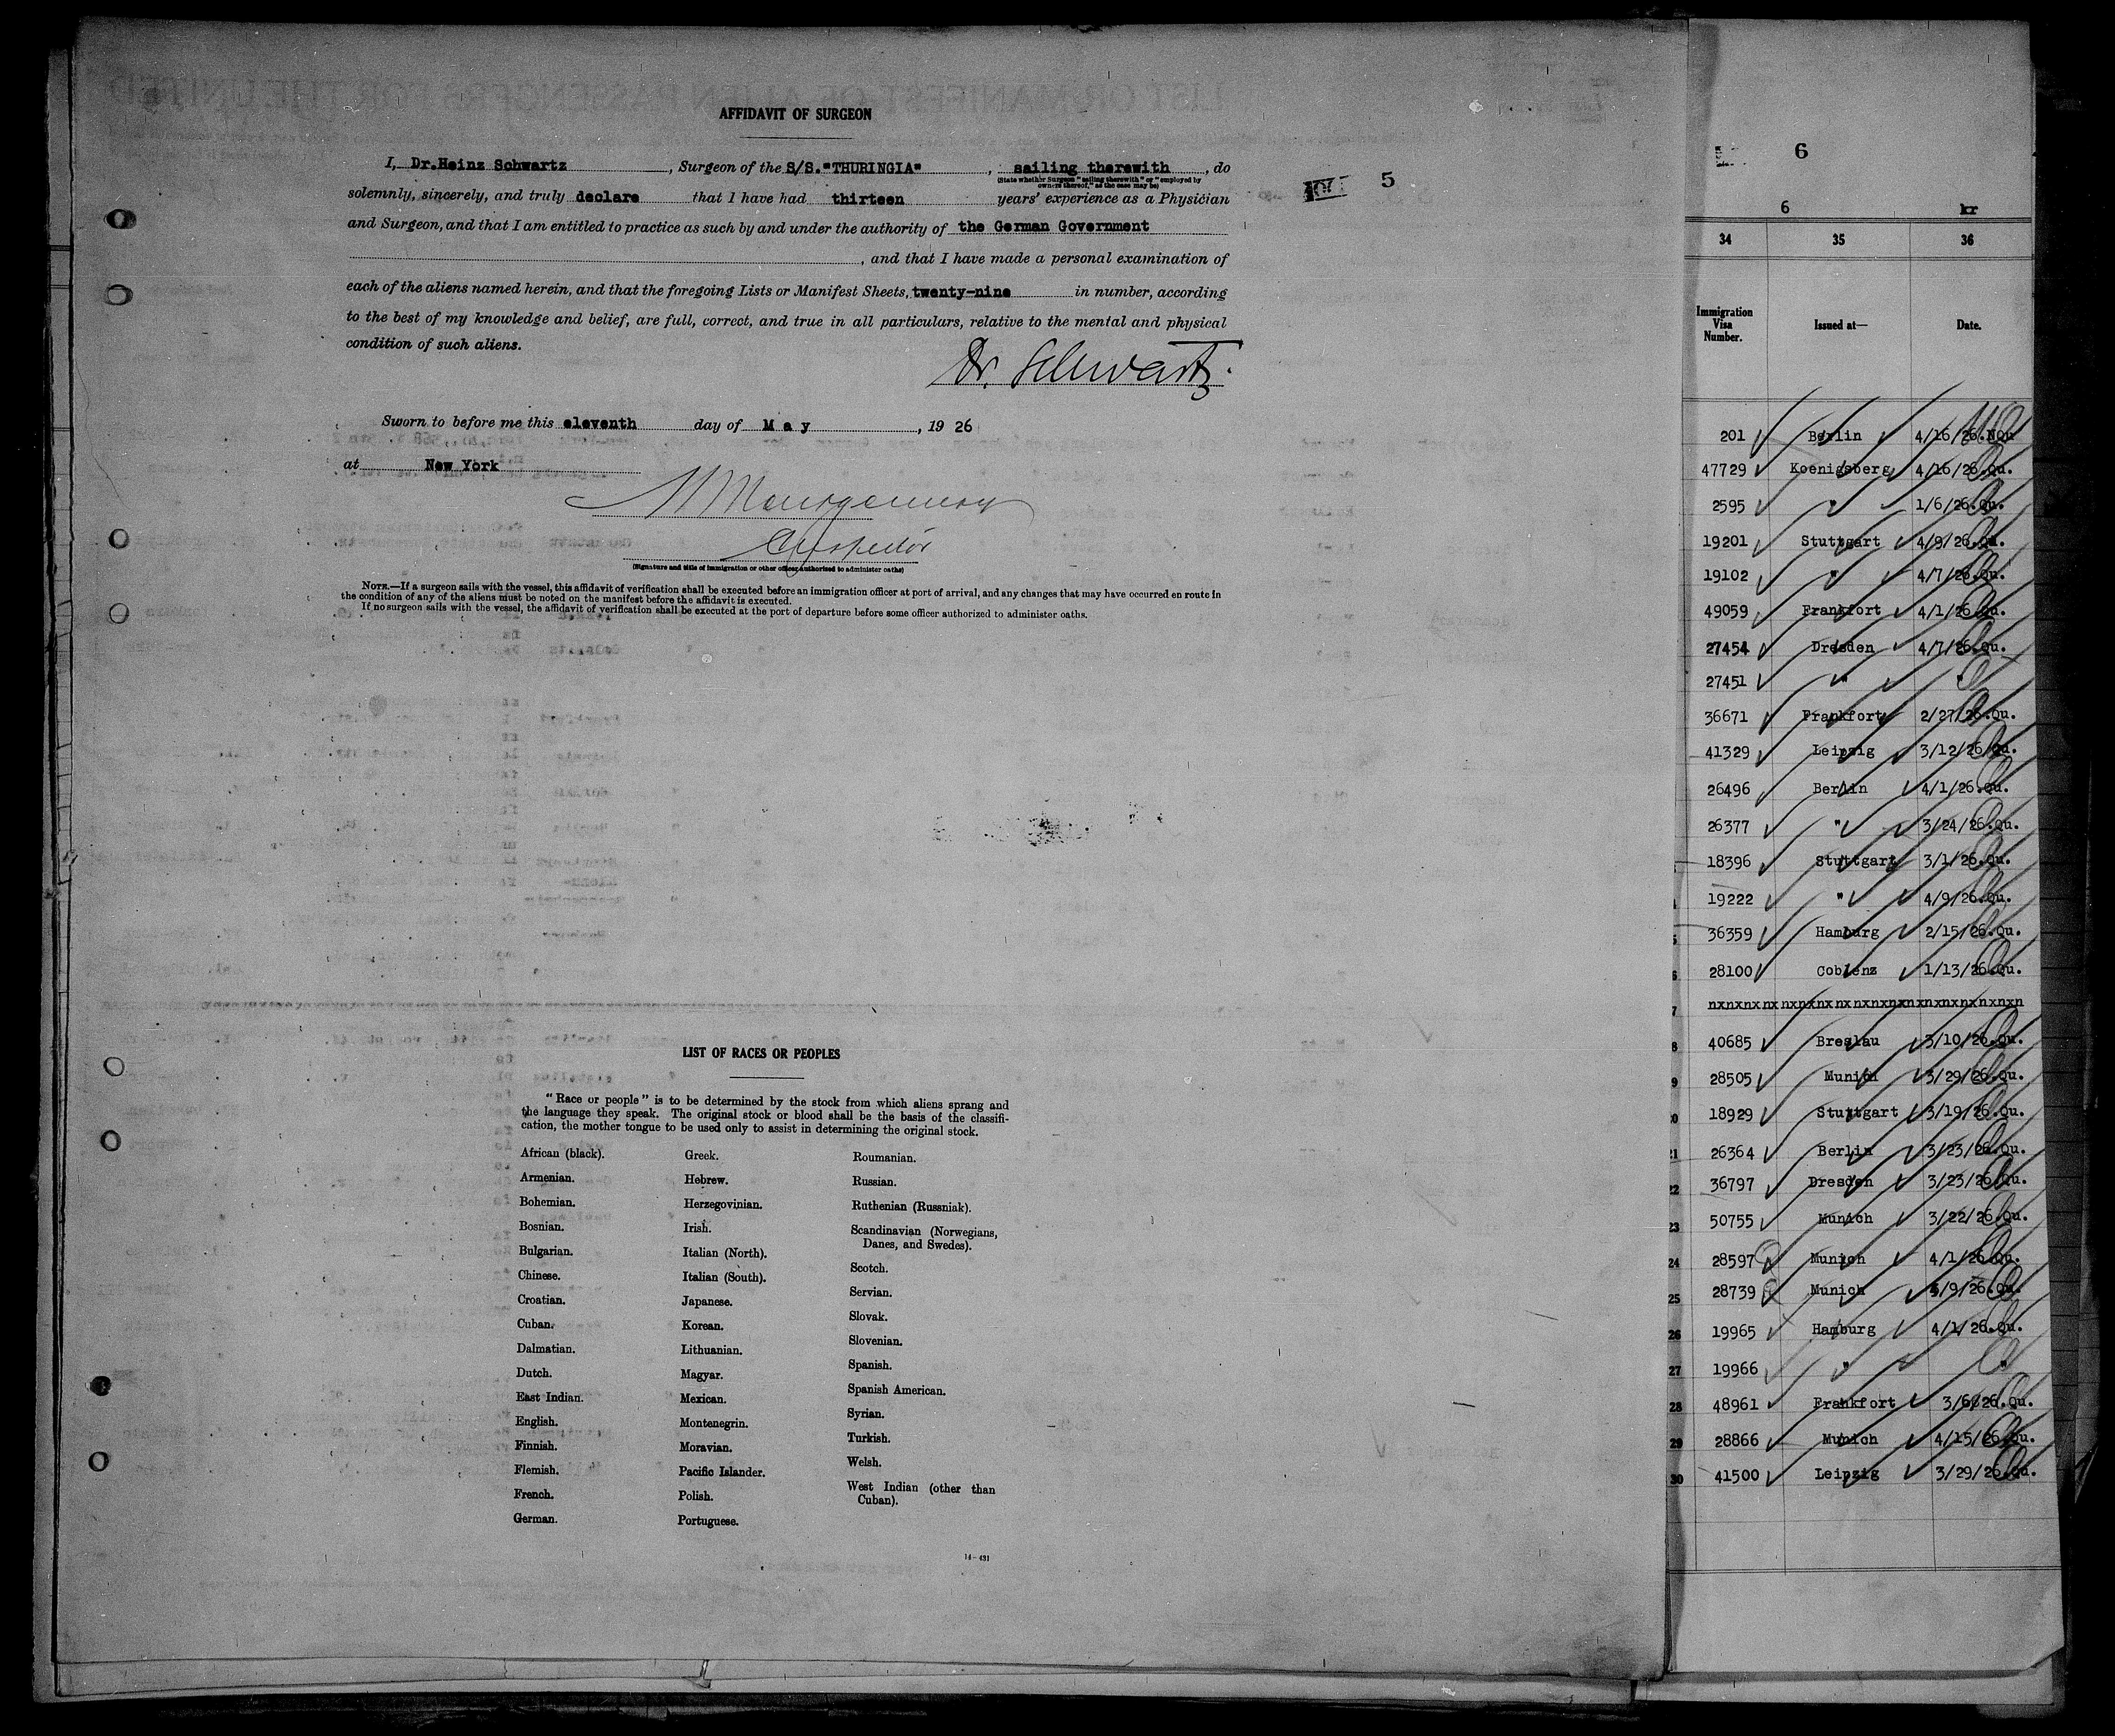 AFFIDAVIT OF SURGEON
I, Dr.Heinz Schwartz, Surgeon of the S/S."THURINGIA", sailing therewith, do
(State whether Surgeon "sailing therewith" or "employed by
owners thereof," as the case may be)
solemnly, sincerely, and truly declare that I have had thirteen years' experience as a Physician
and Surgeon, and that I am entitled to practice as such by and under the authority of the German Government
, and that I have made a personal examination of
each of the aliens named herein, and that the foregoing Lists or Manifest Sheets, twenty-nine in number, according
to the best of my knowledge and belief, are full, correct, and true in all particulars, relative to the mental and physical
condition of such aliens.
Dr. Schwartz.
Sworn to before me this eleventh day of May, 19 26
at New York
Montgomery
Inspector
(Signature and title of immigration or other officer authorized to administer oaths)
NOTE.—If a surgeon sails with the vessel, this affidavit of verification shall be executed before an immigration officer at port of arrival, and any changes that may have occurred en route in
the condition of any of the aliens must be noted on the manifest before the affidavit is executed.
If no surgeon sails with the vessel, the affidavit of verification shall be executed at the port of departure before some officer authorized to administer oaths.
5
LIST OF RACES OR PEOPLES
"Race or people" is to be determined by the stock from which aliens sprang and
the language they speak. The original stock or blood shall be the basis of the classifi-
cation, the mother tongue to be used only to assist in determining the original stock.
African (black).
Armenian.
Bohemian.
Bosnian.
Bulgarian.
Chinese.
Croatian.
Cuban.
Dalmatian.
Dutch.
East Indian.
English.
Finnish.
Flemish.
French.
German.
Greek.
Hebrew.
Herzegovinian.
Irish.
Italian (North).
Italian (South).
Japanese.
Korean.
Lithuanian.
Magyar.
Mexican.
Montenegrin.
Moravian.
Pacific Islander.
Polish.
Portuguese.
Roumanian.
Russian.
Ruthenian (Russniak).
Scandinavian (Norwegians,
Danes, and Swedes).
Scotch.
Servian.
Slovak.
Slovenian.
Spanish.
Spanish American.
Syrian.
Turkish.
Welsh.
West Indian (other than
Cuban).
14-431
6
6 kr
34 35 36
Immigration
Visa
Number.
Issued at—
Date.
201 Berlin 4/16/26.NQu
47729 Koenigsberg 4/16/26.Qu.
2595 " 1/6/26.Qu.
19201 Stuttgart 4/9/26.Qu.
19102 " 4/7/26.Qu.
49059 Frankfort 4/1/26.Qu.
27454 Dresden 4/7/26.Qu.
27451 " "
36671 Frankfort 2/27/26.Qu.
41329 Leipzig 3/12/26.Qu.
26496 Berlin 4/1/26.Qu.
26377 " 3/24/26.Qu.
18396 Stuttgart 3/1/26.Qu.
19222 " 4/9/26.Qu.
36359 Hamburg 2/15/26.Qu.
28100 Coblenz 1/13/26.Qu.
nxnxnxnxnxnxnxnxnxnxnxnxnxnxnxnxnxnxn
8 40685 Breslau 3/10/26.Qu.
9 28505 Munich 3/29/26.Qu.
18929 Stuttgart 3/19/26.Qu.
21 26364 Berlin 3/23/26.Qu.
22 36797 Dresden 3/23/26.Qu.
23 50755 Munich 3/22/26.Qu.
24 28597 Munich 4/1/26.Qu.
25 28739 Munich /9/26.Qu.
26 19965 Hamburg 4/1/26.Qu.
27 19966 " "
28 48961 Frankfort 3/6/26.Qu.
29 28866 Munich 4/15/26.Qu.
30 41500 Leipzig 3/29/26.Qu.